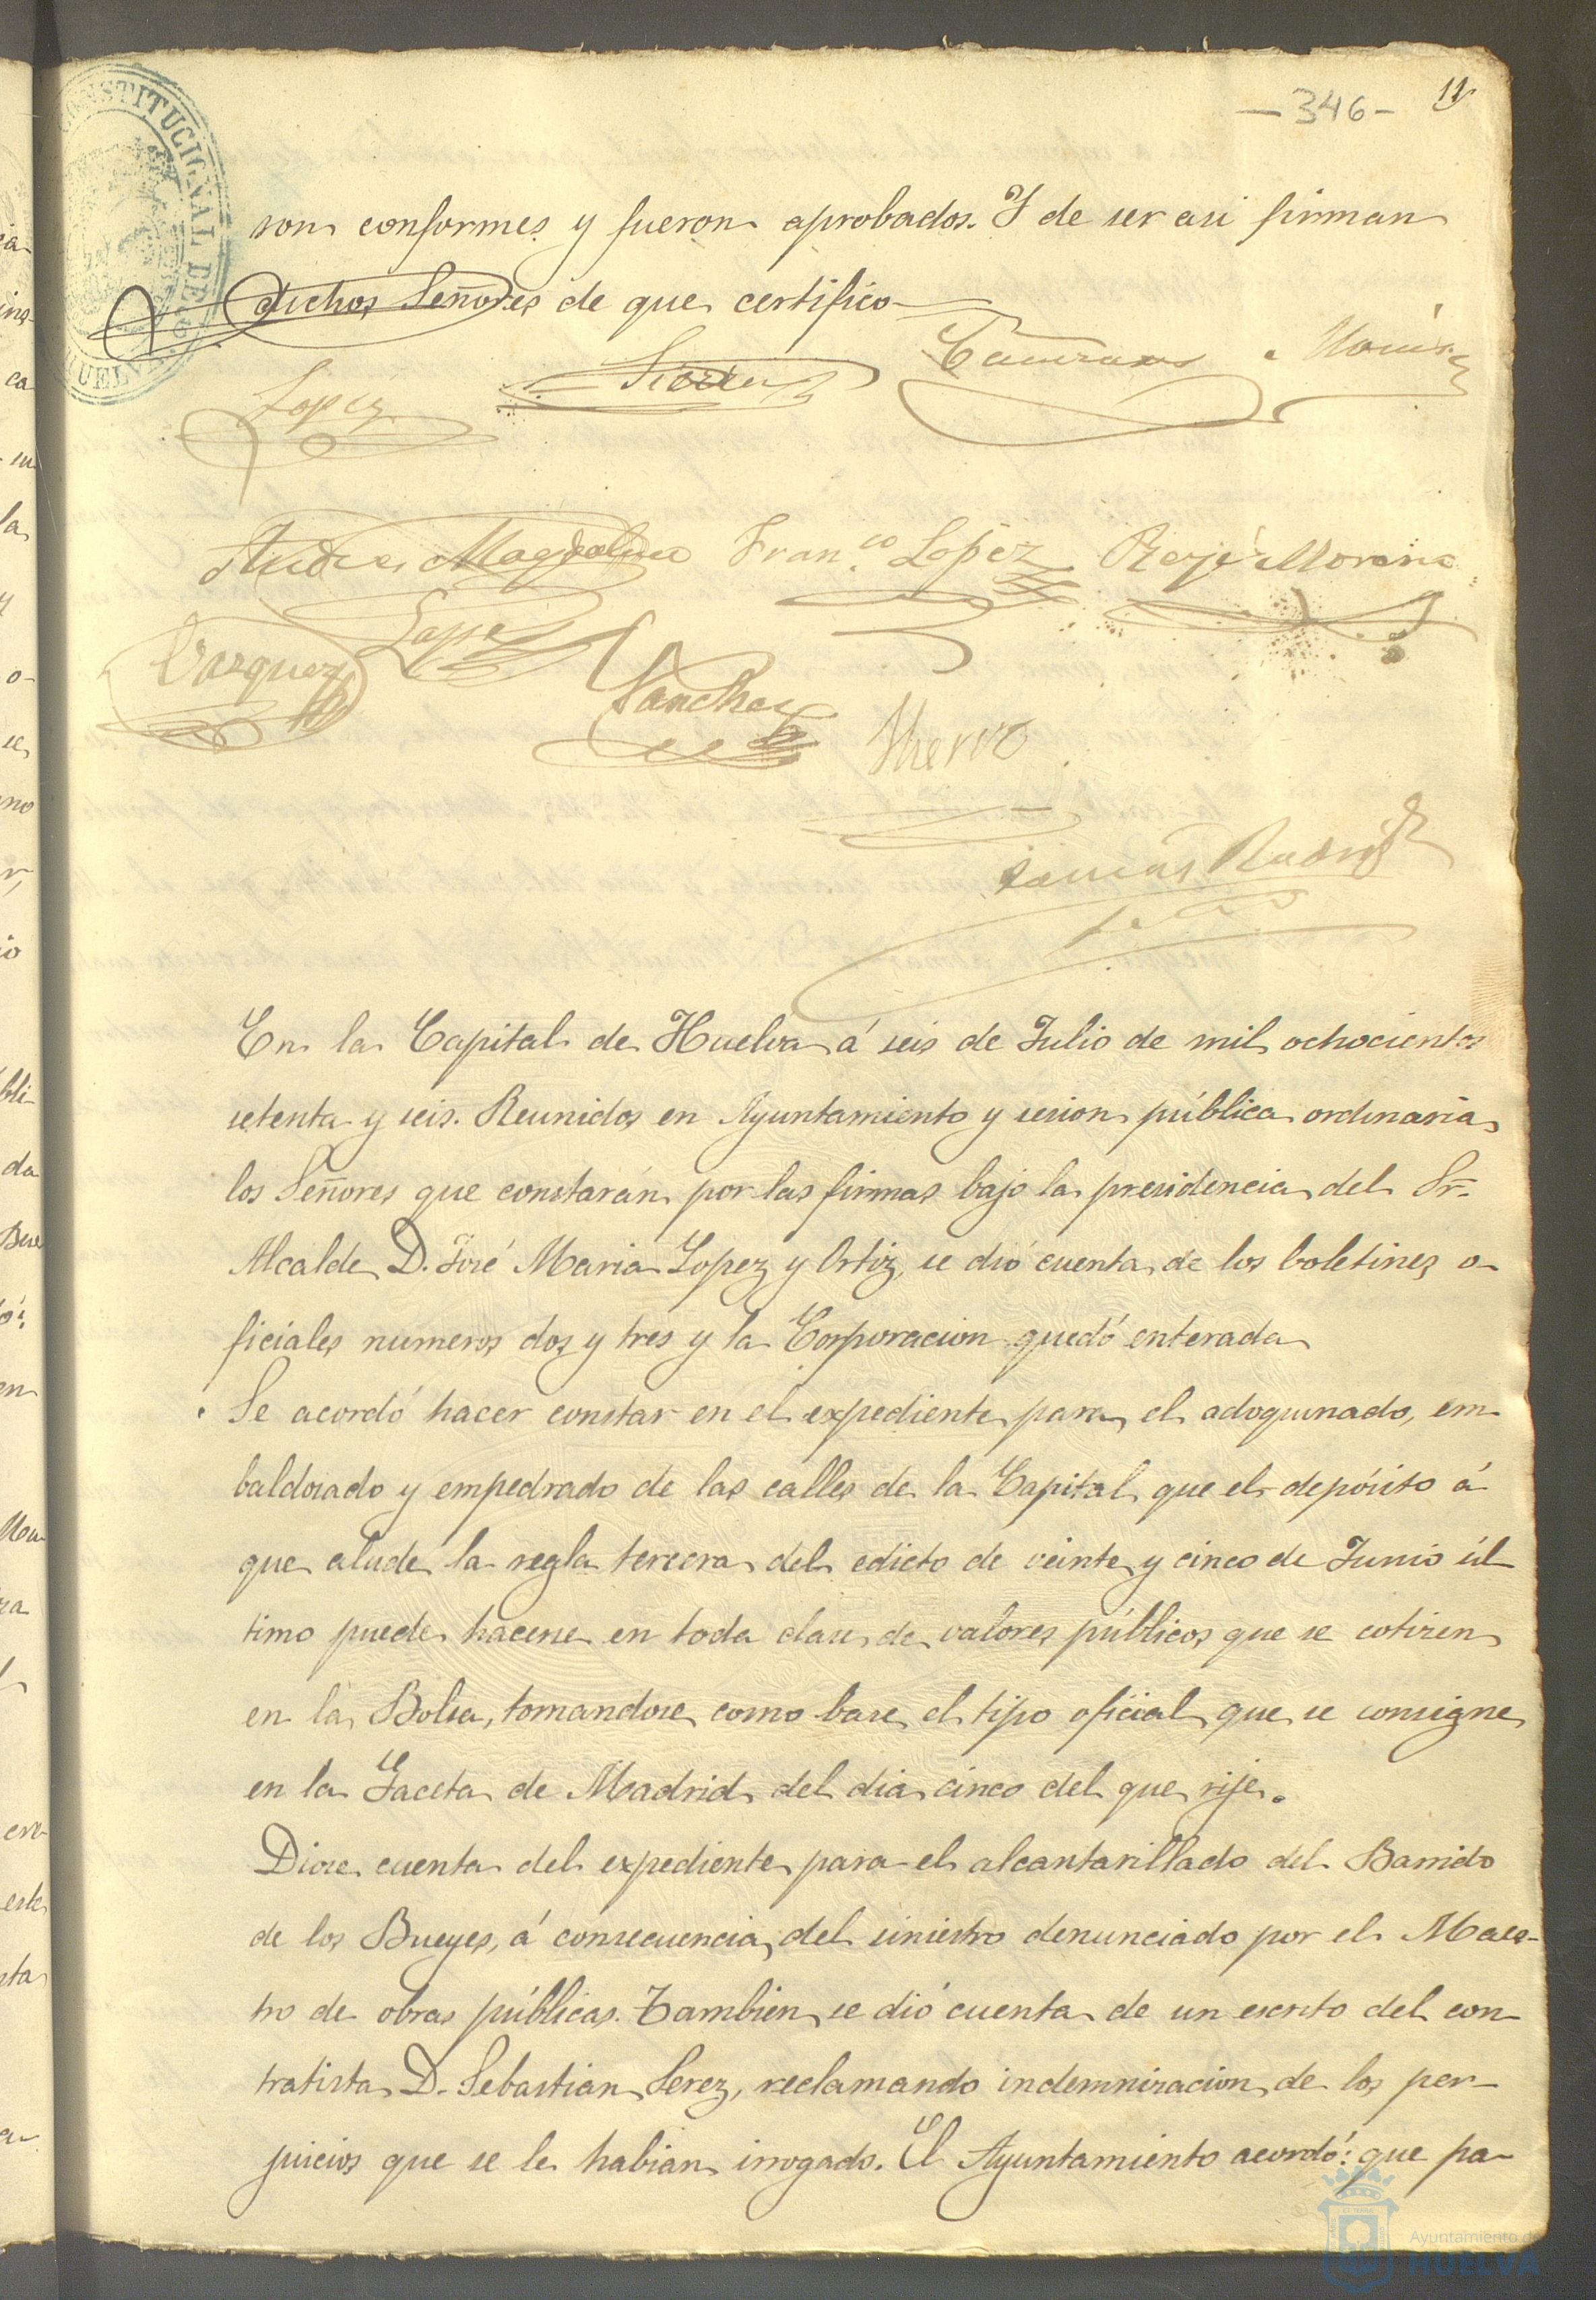 - 346 - 11
CONSTITUCIONAL DE
HUELVA
son conformes y fueron aprobados. Y de ser asi firman
dichos Señores de que certifico
Lopez
Vazquez
Andres Magdalena Fran.co Lopez Moreno
Lopez
Sanchez
En la Capital de Huelva á seis de Julio de mil ochocientos
setenta y seis. Reunidos en Ayuntamiento y sesion pública ordinaria
los Señores que constarán por las firmas bajo la presidencia del Sr.
Alcalde D. José Maria Lopez y Ortiz, se dió cuenta de los boletines o-
ficiales numeros dos y tres y la Corporacion quedó enterada
Se acordó hacer constar en el expediente para el adoquinado, em-
baldosado y empedrado de las calles de la Capital que el depósito á
que alude la regla tercera del edicto de veinte y cinco de Junio úl
timo puede hacerse en toda clase de valores públicos que se coticen
en la Bolsa, tomandose como base el tipo oficial que se consigne
en la Gaceta de Madrid del dia cinco del que rije.
Diose cuenta del expediente para el alcantarillado del Barrido
de los Bueyes, á consecuencia del siniestro denunciado por el Maes-
tro de obras públicas. Tambien se dió cuenta de un escrito del con-
tratista D. Sebastian Serez, reclamando indemnizacion de los per-
juicios que se le habian irrogado. El Ayuntamiento acordó: que pa-
Ayuntamiento de
HUELVA